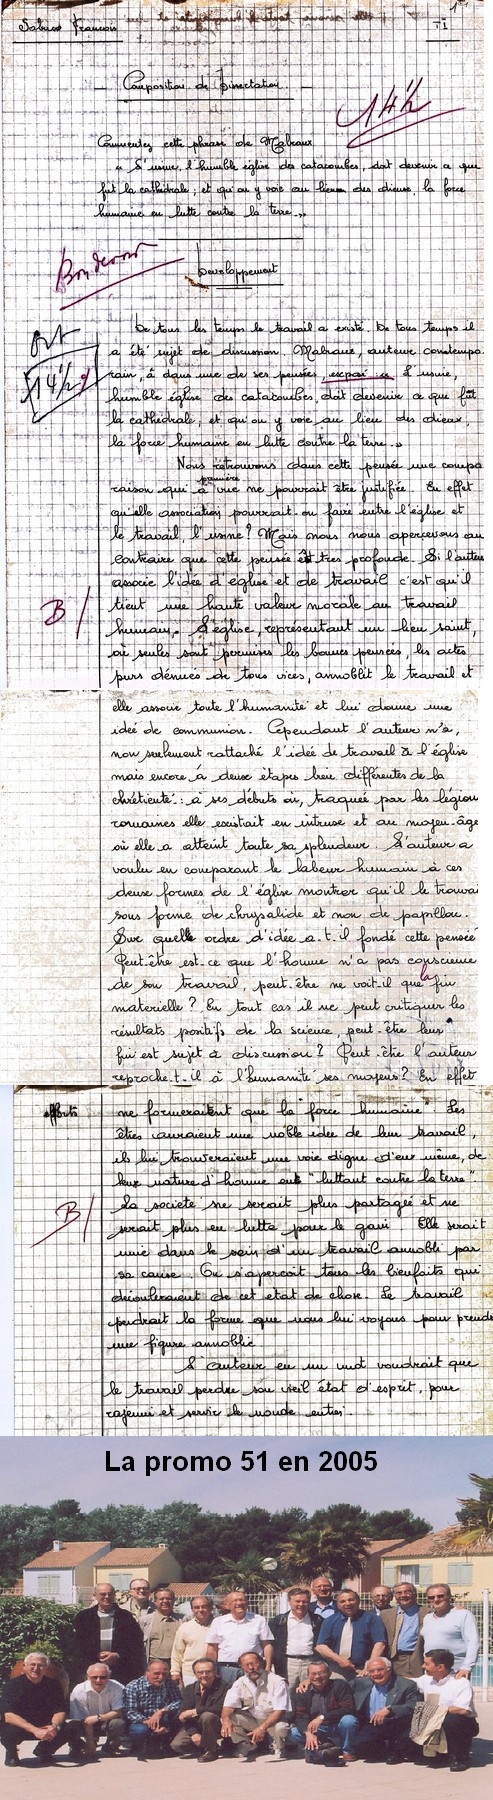 Sabur François
1
I
Composition de Dissertation
14½
Commentez cette phrase de Malraux
" L'usine, l'humble église des catacombes, doit devenir ce que
fut la cathédrale ; et qu'on y voie au lieu des dieux, la force
humaine en lutte contre la terre. "
Bon devoir
Developpement
14½
De tous les temps le travail a existé. De tous temps il
a été sujet de discussion. Malraux, auteur contempo-
rain, à dans une de ses pensées, exposé : " L'usine,
humble église des catacombes, doit devenir ce que fût
la cathédrale, et qu'on y voie au lieu des dieux,
la force humaine en lutte contre la terre. "
Nous retrouvons dans cette pensée une compa
première
raison qui à vue ne pourrait être justifiée. En effet
qu'elle association pourrait-on faire entre l'église et
le travail, l'usine ? Mais nous nous apercevons au
contraire que cette pensée est très profonde. Si l'auteur
associe l'idée d'église et de travail c'est qu'il
B
tient une haute valeur morale au travail
humain. L'église, représentant un lieu saint,
où seules sont permises les bonnes pensées, les actes
purs dénués de tous vices, annoblit le travail et
elle associe toute l'humanité et lui donne une
idée de communion. Cependant l'auteur n'a,
non seulement rattaché l'idée de travail à l'église
mais encore à deux étapes bien différentes de la
chrétienté : à ses débuts où, traquée par les légions
romaines elle existait en intruse et au moyen-âge
où elle a atteint toute sa splendeur. L'auteur a
voulu en comparant le labeur humain à ces
deux formes de l'église montrer qu'il le trouvai
sous forme de chrysalide et non de papillon.
Sur quelle ordre d'idée a-t-il fondé cette pensée
Peut-être est-ce que l'homme n'a pas conscience
la
de son travail, peut-être ne voit-il que fin
matérielle ? En tout cas il ne peut critiquer les
résultats positifs de la science, peut-être leur
fin est sujet à discussion ? Peut-être l'auteur
reproche-t-il à l'humanité ses moyens ? En effet
efforts ne formeraient que la "force humaine" Les
êtres auraient une noble idée de leur travail,
ils lui trouveraient une voie digne d'eux même, de
leur nature d'homme "luttant contre la terre"
la société ne serait plus partagée et ne
B
serait plus en lutte pour le gain Elle serait
unie dans le sein d'un travail annobli par
sa cause. On s'aperçoit tous les bienfaits qui
découleraient de cet état de chose. Le travail
perdrait la forme que nous lui voyons pour prendre
une figure annoblie
L'auteur en un mot voudrait que
le travail perdre son vieil état d'esprit, pour
rajeuni et servir le monde entier.
La promo 51 en 2005